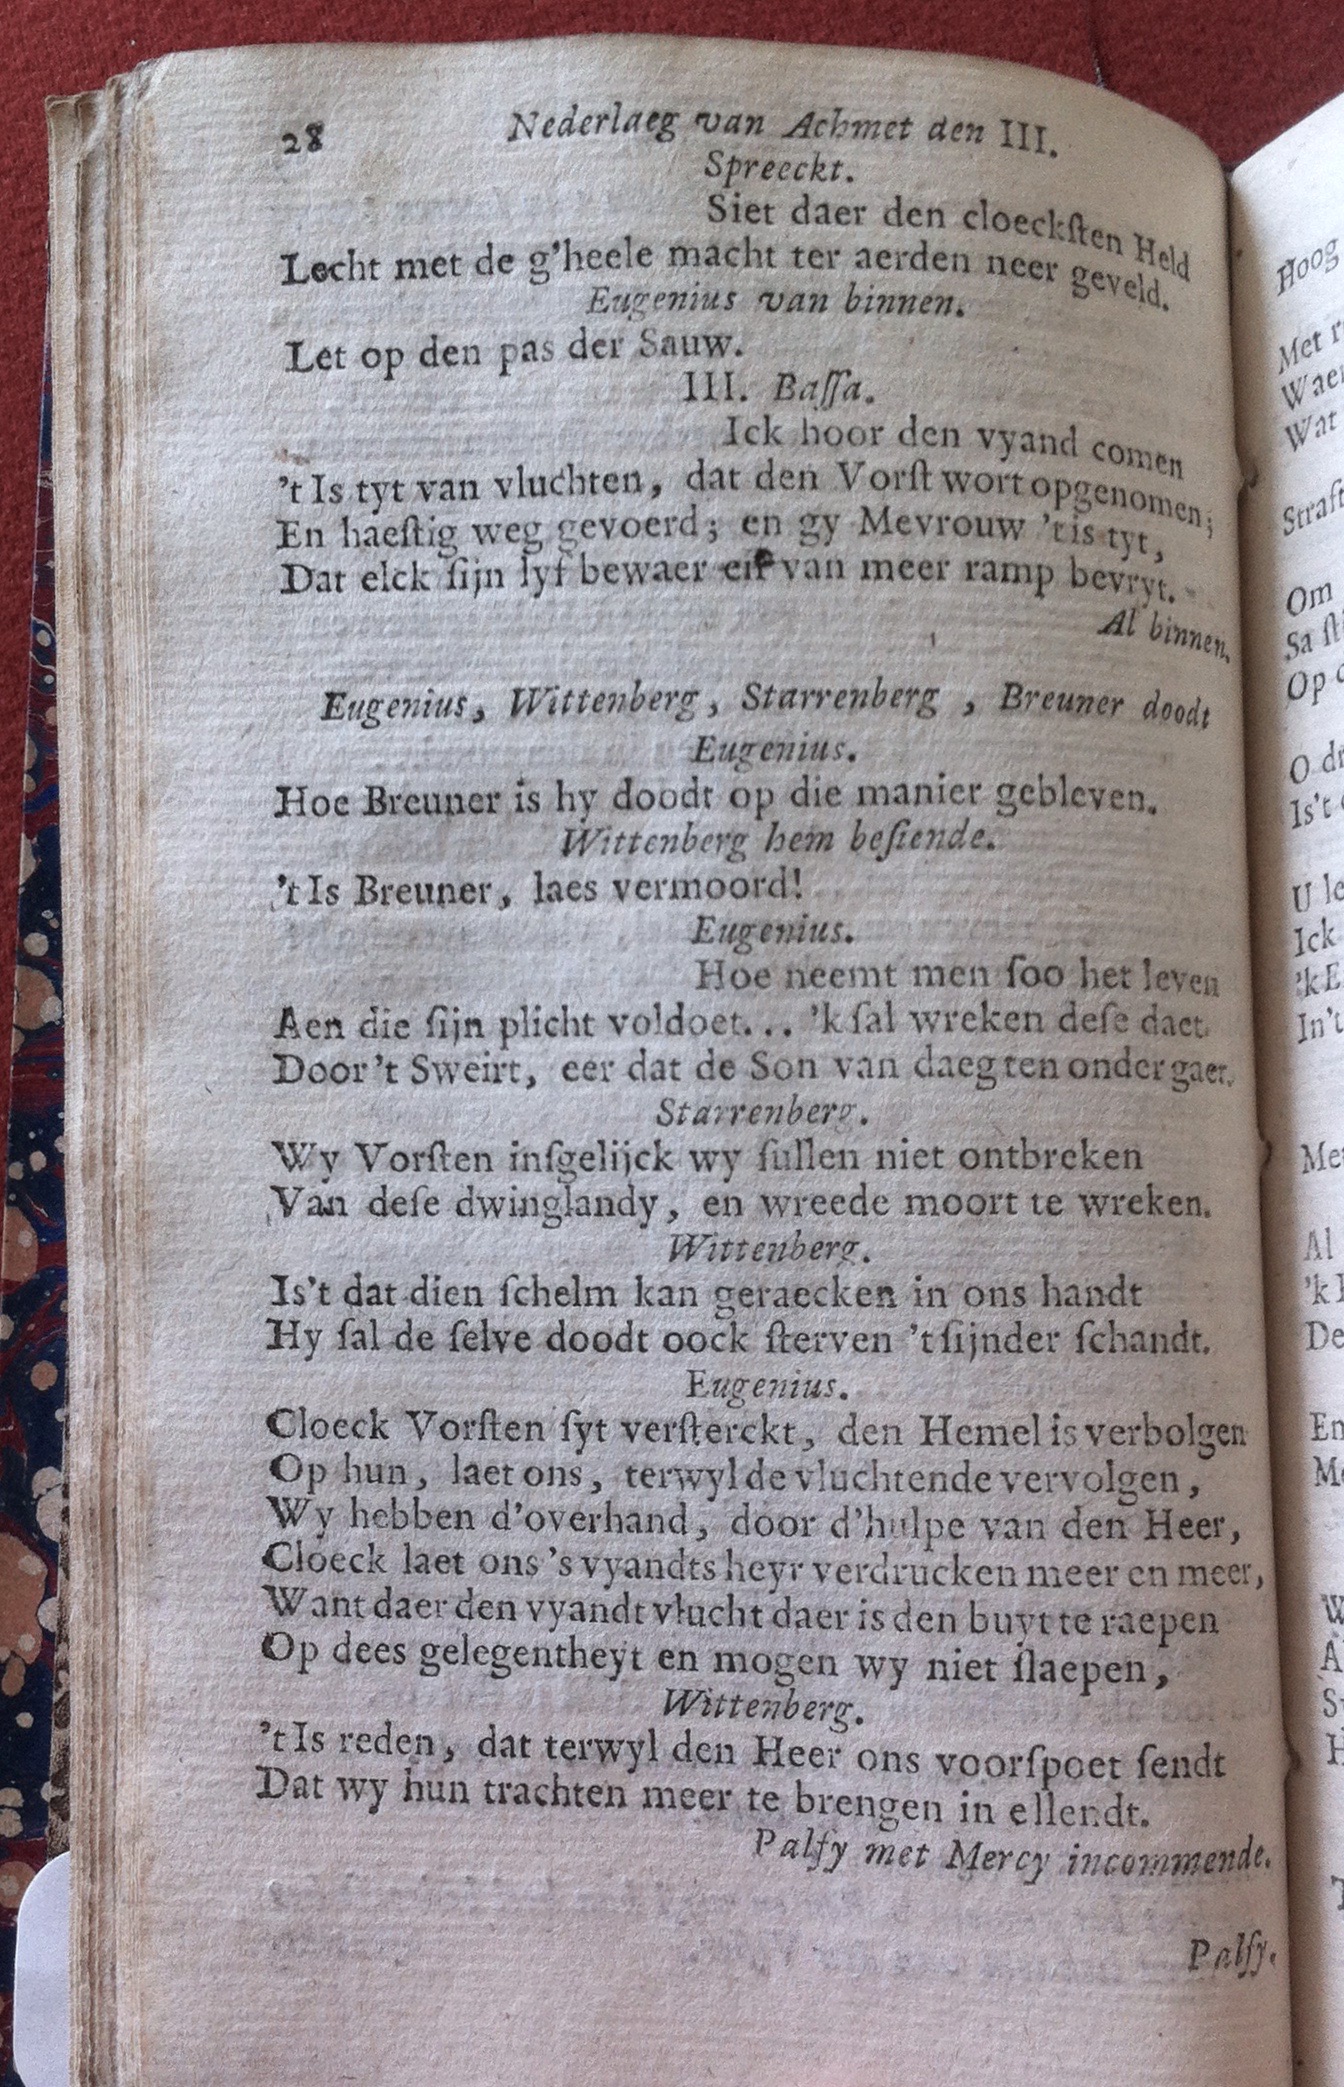 28 Nederlaeg van Achmet den III.
Spreeckt.
Siet daer den cloeckſten Held
Lecht met de g'heele macht ter aerden neer geveld.
Eugenius van binnen.
Let op den pas der Sauw.
III. Baſſa.
Ick hoor den vyand comen
't Is tyt van vluchten, dat den Vorſt wort opgenomen;
En haeſtig weg gevoerd; en gy Mevrouw 't is tyt,
Dat elck ſijn lyf bewaer en van meer ramp bevryt.
Al binnen.
Eugenius, Wittenberg, Starrenberg, Breuner doodt
Eugenius.
Hoe Breuner is hy doodt op die manier gebleven.
Wittenberg hem beſiende.
't Is Breuner, laes vermoord!
Eugenius.
Hoe neemt men ſoo het leven
Aen die ſijn plicht voldoet... 'k ſal wreken deſe daet
Door 't Sweirt, eer dat de Son van daeg ten onder gaet.
Starrenberg.
Wy Vorſten inſgelijck wy ſullen niet ontbreken
Van deſe dwinglandy, en wreede moort te wreken.
Wittenberg.
Is't dat dien ſchelm kan geraecken in ons handt
Hy ſal de ſelve doodt oock ſterven 't ſijnder ſchandt.
Eugenius.
Cloeck Vorſten ſyt verſterckt, den Hemel is verbolgen
Op hun, laet ons, terwyl de vluchtende vervolgen,
Wy hebben d'overhand, door d'hulpe van den Heer,
Cloeck laet ons 's vyandts heyr verdrucken meer en meer,
Want daer den vyandt vlucht daer is den buyt te raepen
Op dees gelegentheyt en mogen wy niet ſlaepen,
Wittenberg.
't Is reden, dat terwyl den Heer ons voorſpoet ſendt
Dat wy hun trachten meer te brengen in ellendt.
Palfy met Mercy incommende.
Palfy.
Hoog
Waer
Wat
Om
Op
U
Ick
'k
In't
Al
'k
De
En